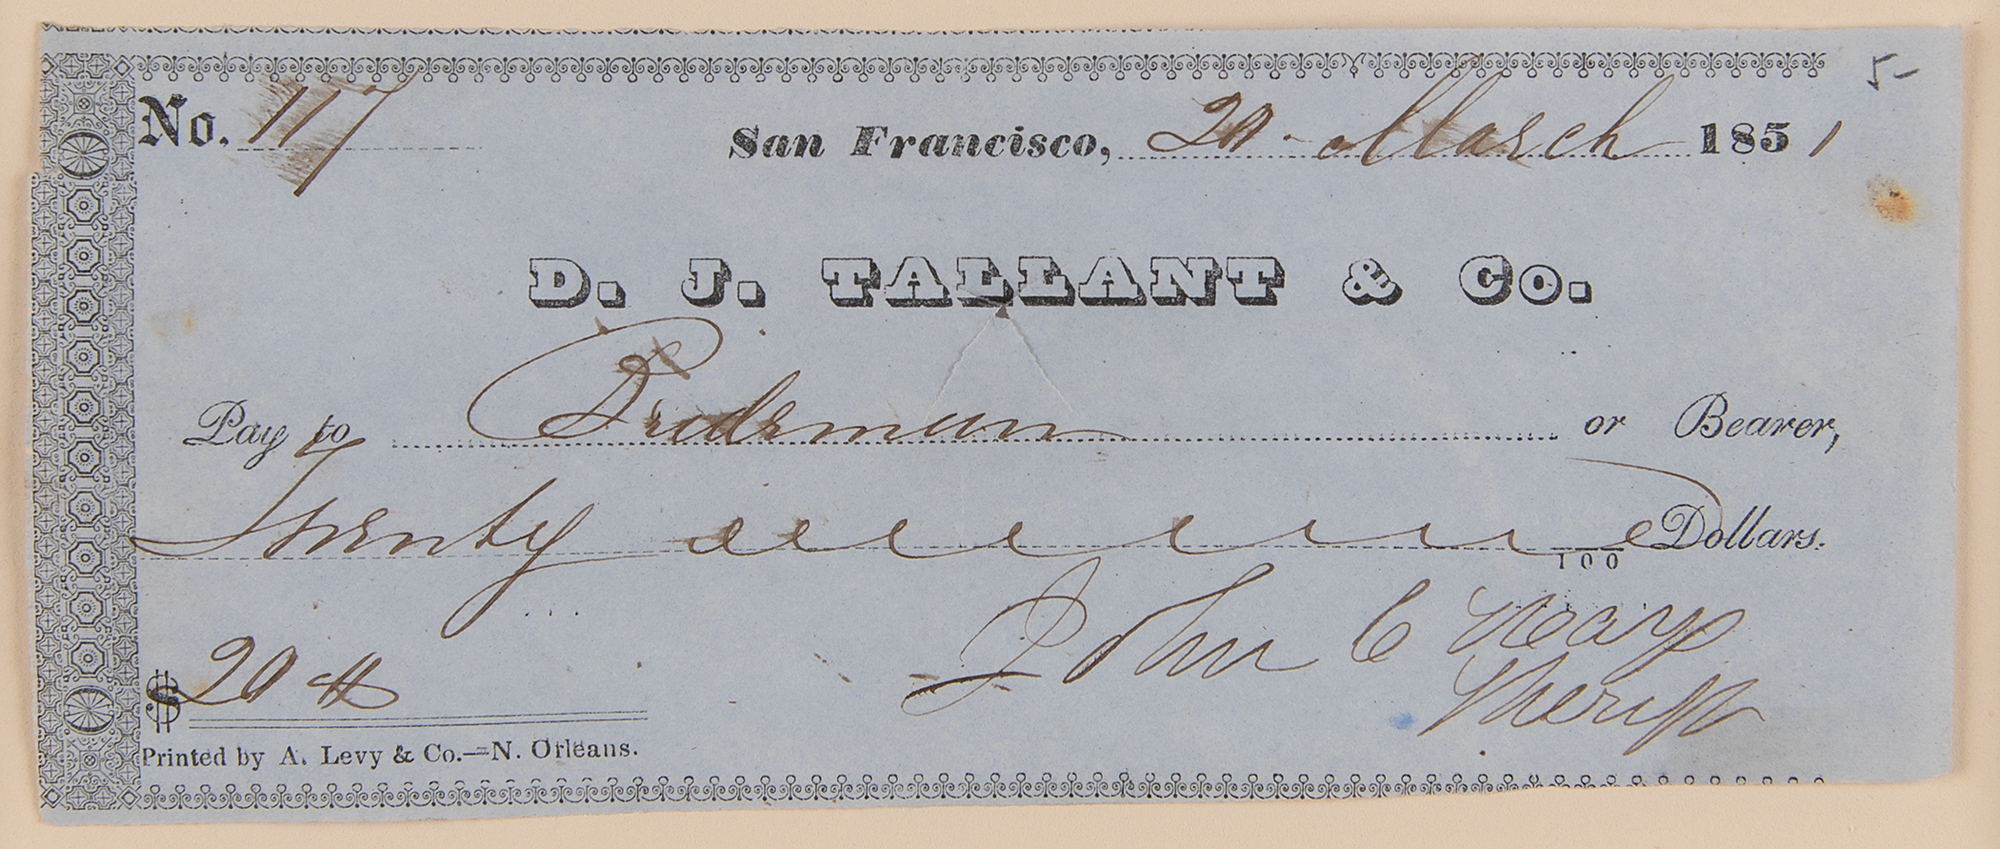 5-
No. 117
San Francisco, 20 - March 1851
D. J. TALLANT & Co.
Pay to or Bearer,
Twenty Dollars.
100
John C Hays
Sheriff
$ 20
Printed by A. Levy & Co.—N. Orleans.